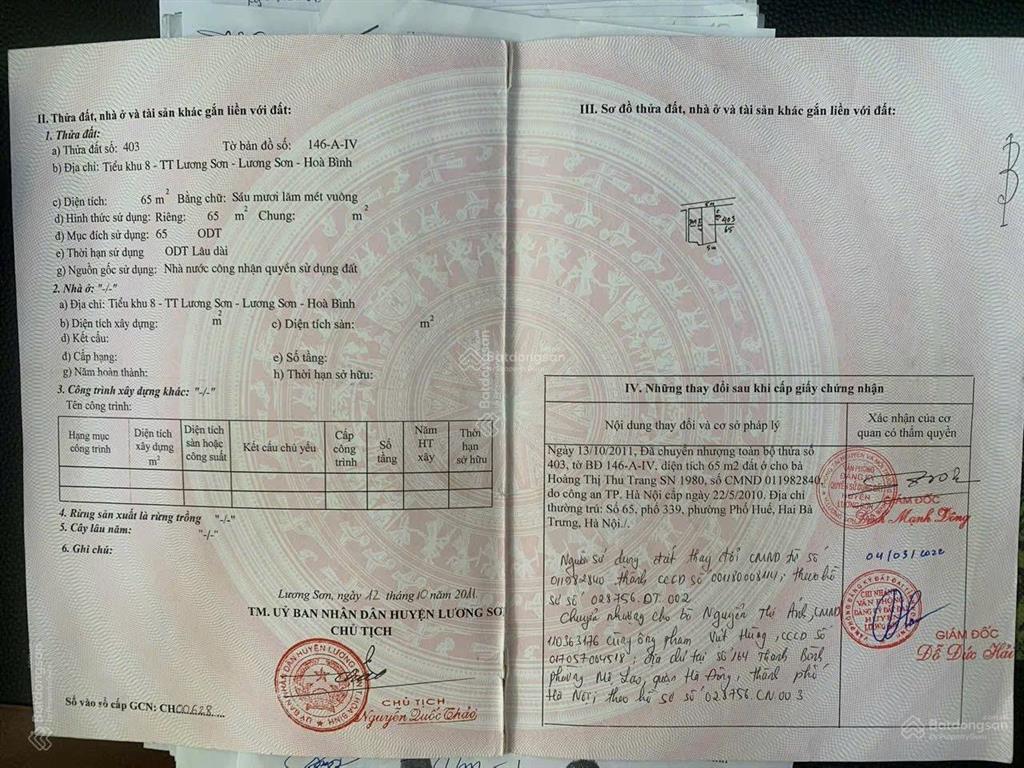 II. Thửa đất, nhà ở và tài sản khác gắn liền với đất:
1. Thửa đất:
a) Thửa đất số: 403 Tờ bản đồ số: 146-A-IV
b) Địa chỉ: Tiểu khu 8 - TT Lương Sơn - Lương Sơn - Hoà Bình
c) Diện tích: 65 m² Bằng chữ: Sáu mươi lăm mét vuông
d) Hình thức sử dụng: Riêng: 65 m² Chung: m²
đ) Mục đích sử dụng: 65 ODT
e) Thời hạn sử dụng ODT Lâu dài
g) Nguồn gốc sử dụng: Nhà nước công nhận quyền sử dụng đất
2. Nhà ở: "-/-"
a) Địa chỉ: Tiểu khu 8 - TT Lương Sơn - Lương Sơn - Hoà Bình
b) Diện tích xây dựng: m² c) Diện tích sàn: m²
d) Kết cấu:
đ) Cấp hạng: e) Số tầng:
g) Năm hoàn thành: h) Thời hạn sở hữu:
3. Công trình xây dựng khác: "-/-"
Tên công trình:
Hạng mục công trình
Diện tích xây dựng m²
Diện tích sàn hoặc công suất
Kết cấu chủ yếu
Cấp công trình
Số tầng
Năm HT xây
Thời hạn sở hữu
4. Rừng sản xuất là rừng trồng "-/-"
5. Cây lâu năm: "-/-"
6. Ghi chú:
Lương Sơn, ngày 12 tháng 10 năm 2011
TM. UỶ BAN NHÂN DÂN HUYỆN LƯƠNG SƠN
CHỦ TỊCH
CHỦ TỊCH
Nguyễn Quốc Thảo
Số vào sổ cấp GCN: CH00628
III. Sơ đồ thửa đất, nhà ở và tài sản khác gắn liền với đất:
B
5m
403
65
5m
IV. Những thay đổi sau khi cấp giấy chứng nhận
Nội dung thay đổi và cơ sở pháp lý
Xác nhận của cơ
quan có thẩm quyền
Ngày 13/10/2011, Đã chuyển nhượng toàn bộ thửa số
403, tờ BĐ 146-A-IV, diện tích 65 m2 đất ở cho bà
Hoàng Thị Thu Trang SN 1980, số CMND 011982840,
do công an TP. Hà Nội cấp ngày 22/5/2010. Địa chỉ
thường trú: Số 65, phố 339, phường Phố Huế, Hai Bà
Trưng, Hà Nội./.
GIÁM ĐỐC
Đinh Mạnh Dông
Người sử dụng đất thay đổi CMND từ số
011982840 thành CCCD số 001180008114; theo hồ
sơ số 028756.ĐT.002
Chuyển nhượng cho bà Nguyễn Thị Ánh, CMND
110363176 cùng ông phạm Viết Hùng, CCCD số
017057004518; địa chỉ tại số 164 Thanh Bình
phường Mộ Lao, quận Hà Đông, thành phố
Hà Nội; theo hồ sơ số 028756.CN.003
04/03/2022
GIÁM ĐỐC
Đỗ Đức Hảo
Batdongsan
by PropertyGuru
Batdongsan
by PropertyGuru